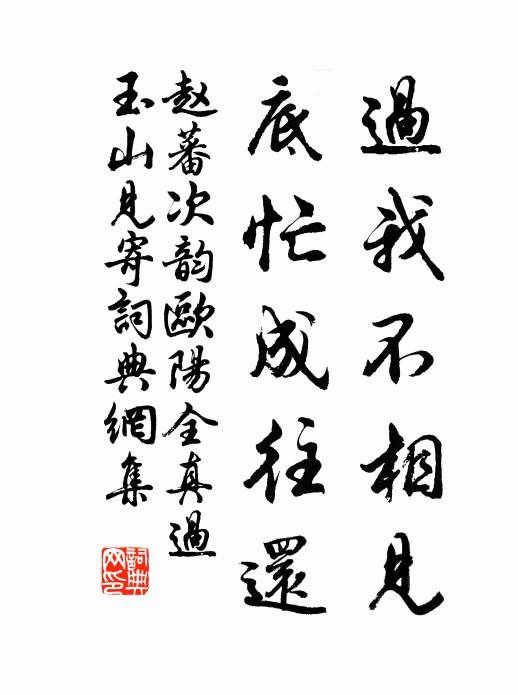 過我不相見
底忙成往還
赵蕃次韵歐陽全真過
玉山見寄詞典網集
詞典网印